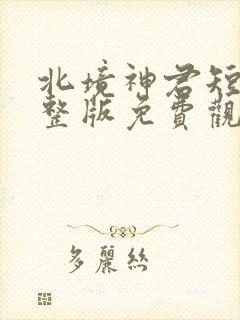 北境神君短
整版免費觀
多麗絲